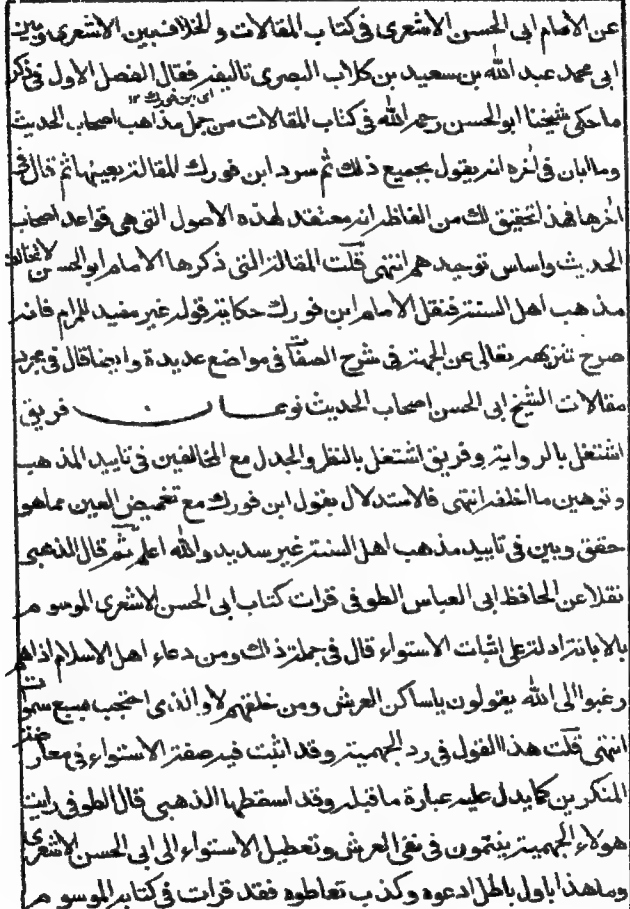 عن الامام ابی الحسن الاشعری فی کتاب المقالات و الخلاف بین الاشعری و بین
ابی محمد عبد الله بن سعید بن کلاب البصری تالیفہ فقال الفصل الاول فی ذکر
ای ابن فورك ۱۲
ما حکی شیخنا ابو الحسن رحمہ الله فی کتاب المقالات من جمل مذاهب اصحاب الحدیث
وما ابان فی اخرہ انہ یقول بجمیع ذلك ثم سرد ابن فورك المقالۃ بعینها ثم قال فی
اخرها فهذا تحقیق لك من الفاظہ انہ معتقد لهذه الاصول التی هی قواعد اصحاب
الحدیث واساس توحیدهم انتهی قلت المقالۃ التی ذکرها الامام ابو الحسن لا تخالف
مذهب اهل السنۃ فنقل الامام ابن فورك حکایۃ قولہ غیر مفید للمرام فانہ
صرح تنزیهہ تعالی عن الجهۃ فی شرح الصفات فی مواضع عدیدة وایضا قال فی مجرد
مقالات الشیخ ابی الحسن اصحاب الحدیث نوعان فریق
اشتغل بالروایۃ وفریق اشتغل بالنظر والجدل مع المخالفین فی تایید المذهب
وتوهین ما خلفہ انتهی فالاستدلال بقول ابن فورك مع تغمیض العین عما هو
حقق وبین فی تایید مذهب اهل السنۃ غیر سدید والله اعلم ثم قال الذهبی
نقلا عن الحافظ ابی العباس الطوفی قرات کتاب ابی الحسن الاشعری الموسوم
بالابانۃ ادلۃ علی اثبات الاستواء قال فی جملۃ ذالك ومن دعاء اهل الاسلام اذا هم
رغبوا الی الله یقولون یا ساکن العرش ومن خلقهم لا والذی احتجب بسبع سموات
انتهی قلت هذا القول فی رد الجهمیۃ وقد اثبت فیہ صفۃ الاستواء فی معارضۃ
المنکرین کما یدل علیہ عبارة ما قبلہ وقد اسقطها الذهبی قال الطوفی رایت
هولاء الجهمیۃ ینتمون فی نفی العرش وتعطیل الاستواء الی ابی الحسن الاشعری
وما هذا باول باطل ادعوه وکذب تعاطوه فقد قرات فی کتابہ الموسوم